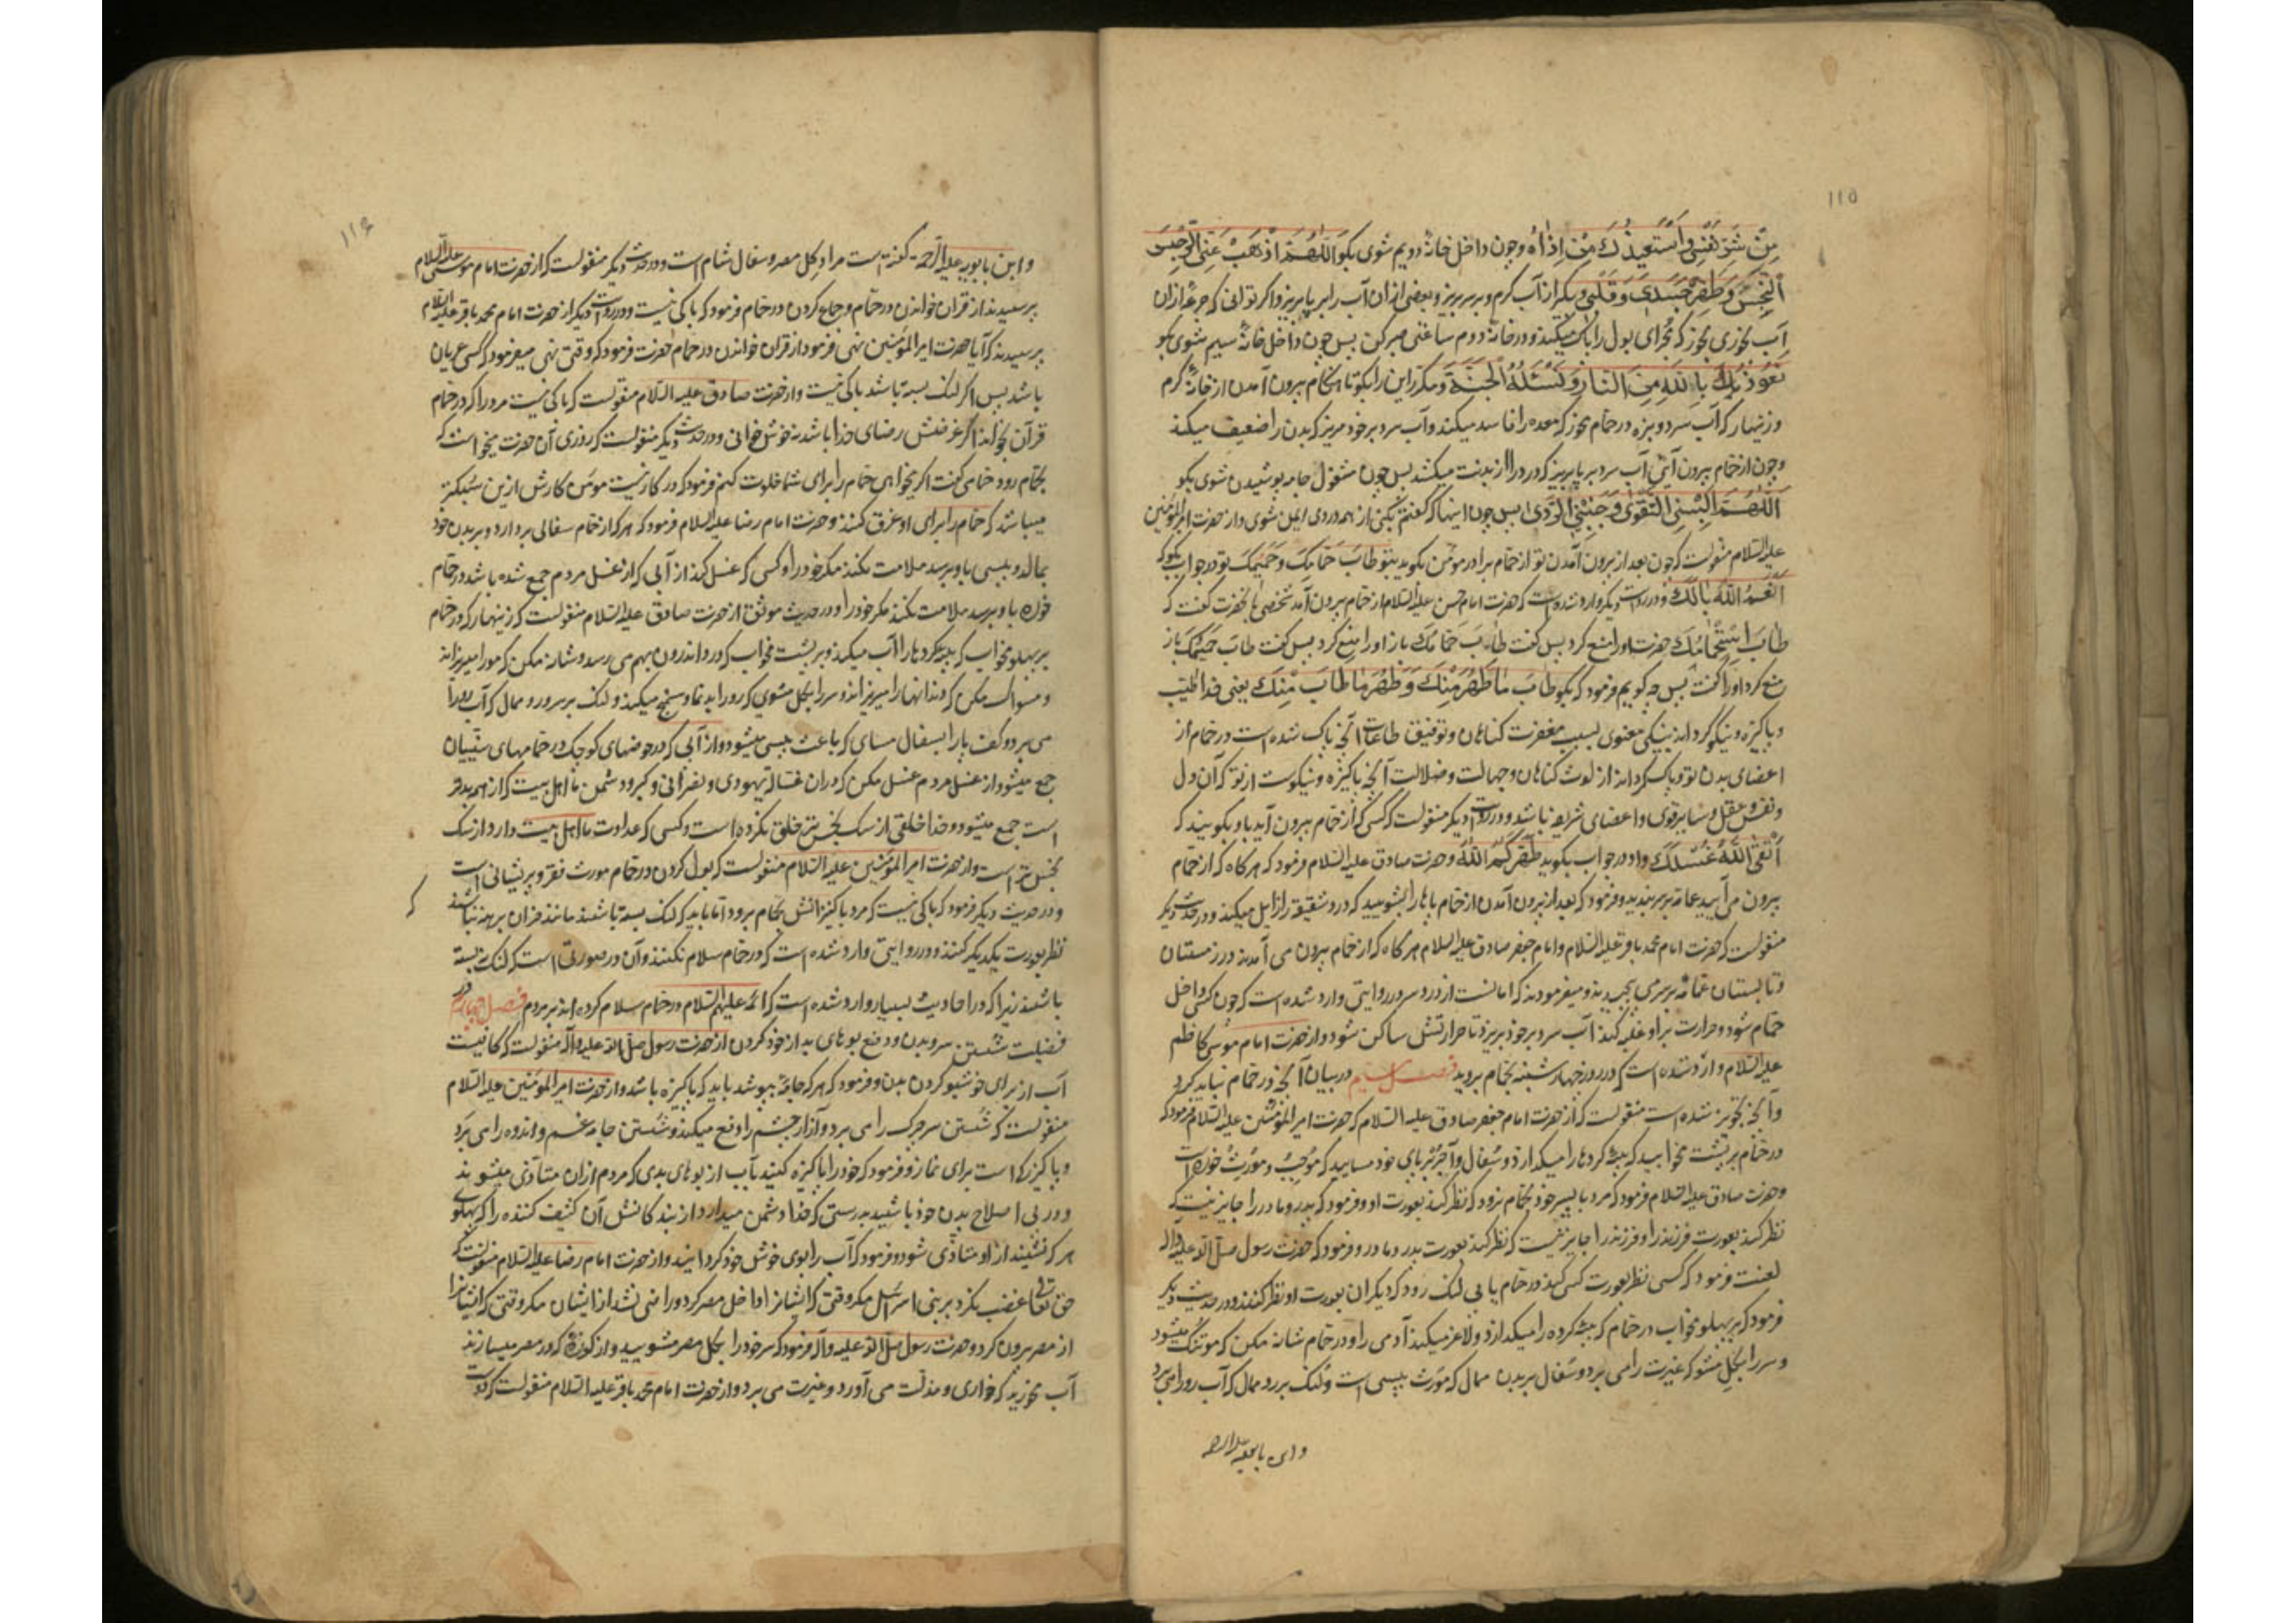 ۱۱۵
مِنْ شَرِّ نَفْسِي وَاَسْتَعِيذُ بِكَ مِنْ اَذَاهُ و چون داخل خانهٔ دویم شوی بگو اَللّٰهُمَّ اذْهَبْ عَنِّي الرِّجْسَ
النَّجِسَ وَطَهِّرْ جَسَدِي وَقَلْبِي و بگیر از آب گرم و بر سر بریز و بعضی از آن آب را بر پا بریز و اگر توانی که جرعهٔ از ان
آب بخوری بخور که مجرای بول را پاک میکند و در خانهٔ دوم ساعتی صبر کن پس چون داخل خانهٔ سیم شوی بگو
نَعُوذُ بِاللّٰهِ مِنَ النَّارِ وَنَسْئَلُهُ الْجَنَّةَ و مکرر این را بگو تا هنگام بیرون آمدن از خانهٔ گرم
و زنهار که آب سرد و بزه در حمام مخور که معده را فاسد میکند و آب سرد بر خود مریز که بدن را ضعیف میکند
و چون از حمام بیرون آیی آب سرد بر پا بریز که درد را از بدنت میکشد پس چون مشغول جامه پوشیدن شوی بگو
اَللّٰهُمَّ اَلْبِسْنِي التَّقْوٰى وَجَنِّبْنِي الرَّدٰى پس چون اینها که گفتم بکنی از همه دردی ایمن شوی و از حضرت امیر المؤمنین
علیه السلام منقولست که چون بعد از بیرون آمدن تو از حمام برادر مومن بگوید بتو طَابَ حَمَّامُكَ وَحَمِيمُكَ تو در جواب بگو که
اَنْعَمَ اللّٰهُ بَالَكَ و در روایت دیگر وارد شده است که حضرت امام حسن علیه السلام از حمام بیرون آمد شخصی بانحضرت گفت که
طَابَ اسْتِحْمَامُكَ حضرت او را منع کرد پس گفت طَابَ حَمَّامُكَ باز او را منع کرد پس گفت طَابَ حَمِيمُكَ باز
منع کرد او را گفت پس چه گویم فرمود که بگو طَابَ مَا طَهُرَ مِنْكَ وَطَهُرَ مَا طَابَ مِنْكَ یعنی خدا طیب
و پاکیزه و نیکو گرداند بنیکی معنوی بسبب مغفرت کناهان و توفیق طاعات آنچه پاک شده است در حمام از
اعضای بدن تو و پاک گرداند از لوث کناهان و جهالت و ضلالت آنچه پاکیزه و نیکوست از تو که آن دل
و نفس و عقل و سایر قوی و اعضای شریفه باشد و در روایت دیگر منقولست که کسی که از حمام بیرون آید باو بگویند که
اَنْقَى اللّٰهُ غُسْلَكَ و او در جواب بگوید طَهَّرَكُمُ اللّٰهُ و حضرت صادق علیه السلام فرمود که هر گاه که از حمام
بیرون می آیید عمامه بر سر بندید و فرمود که بعد از بیرون آمدن از حمام پاها را بشویید که درد شقیقه را زایل میکند و در حدیث دیگر
منقولست که حضرت امام محمد باقر علیه السلام و امام جعفر صادق علیه السلام هر گاه که از حمام بیرون می آمدند در زمستان
و تابستان عمامه بر سر می پیچیدند و میفرمودند که امانست از درد سر و در روایتی وارد شده است که چون کسی داخل
حمام شود و حرارت بر او غلبه کند آب سرد بر خود بریزد تا حرارتش ساکن شود و از حضرت امام موسی کاظم
علیه السلام وارد شده است که در روز چهار شنبه بحمام بروید فصل سیم در بیان آنچه در حمام نباید کرد
و آنچه تجویز شده است منقولست که از حضرت امام جعفر صادق علیه السلام که حضرت امیر المؤمنین علیه السلام فرمود که
در حمام بر پشت مخوابید که پیه گردها را میکدازد و سفال و آجر بر پای خود مسایید که موجب و مورث خوره است
و حضرت صادق علیه السلام فرمود که مرد با پسر خود بحمام نرود که نظر کند بعورت او و فرمود که پدر و مادر را جایز نیست که
نظر کنند بعورت فرزند را و فرزند را جایز نیست که نظر کند بعورت پدر و مادر و فرمود که حضرت رسول صلی الله علیه و آله
لعنت فرمود کسی نظر بعورت کسی کند در حمام یا بی لنک رود که دیگران بعورت او نظر کنند و در حدیث دیگر
فرمود که بر پهلو مخواب در حمام که پیه گرده را میکدازد و لاغر میکند آدمی را و در حمام شانه مکن که مو تنک میشود
و سر را بگل مشو که غیرت را می برد و سفال بر بدن ممال که مورث پیسی است و لنک بر رو ممال که آب رو را می برد
و ابن بابویه علیه الرحمه
۱۱۶
و ابن بابویه علیه الرحمه گفته است مراد گل مصر و سفال شام است و در حدیث دیگر منقولست که از حضرت امام موسی علیه السلام
پرسیدند از قران خواندن در حمام و جماع کردن در حمام فرمود که باکی نیست و در روایت دیگر از حضرت امام محمد باقر علیه السلام
پرسیدند که آیا حضرت امیر المؤمنین نهی فرمود از قران خواندن در حمام حضرت فرمود که وقتی نهی میفرمود که کسی عریان
باشد پس اگر لنک بسته باشد باکی نیست و از حضرت صادق علیه السلام منقولست که باکی نیست مرد را که در حمام
قرآن بخواند اگر غرضش رضای خدا باشد نه خوش خوانی و در حدیث دیگر منقولست که روزی آن حضرت میخواست که
بحمام رود حمامی گفت اگر بخواهی حمام را برای شما خلوت کنم فرمود که در کار نیست مومن کارش ازین سبکتر
میباشد که حمام را برای او غرق کنند و حضرت امام رضا علیه السلام فرمود که هر که از حمام سفالی بردارد و بر بدن خود
بمالد و پیسی باو برسد ملامت نکند مگر خود را و کسی که غسل کند از آبی که از غسل مردم جمع شده باشد در حمام
خوره باو برسد ملامت نکند مگر خود را و در حدیث موثق از حضرت صادق علیه السلام منقولست که زینهار که در حمام
بر پهلو مخواب که پیه گردها را آب میکند و بر پشت مخواب که درد اندرون بهم می رسد و شانه مکن که مو را میریزاند
و مسواک مکن که دندانها را میریزاند و سر را بگل مشوی که رو را بد نما و میکند و لنک بر سر و رو ممال که آب رو را
می برد و کف پا را بسفال مسای که باعث پیسی میشود و از آبی که در حوضهای کوچک در حمامهای سنیان
جمع میشود از غسل مردم غسل مکن که در ان غساله یهودی و نصرانی و کبر و دشمن ما اهل بیت که از همه بدتر
است جمع میشود و خدا خلقی از سک نجس تر خلق نکرده است و کسی که عداوت ما اهل بیت دارد از سک
نجس تر است و از حضرت امیر المؤمنین علیه السلام منقولست که بول کردن در حمام مورث فقر و پریشانی است
و در حدیث دیگر فرمود که باکی نیست که مرد با کنیزانش بحمام برود اما باید که لنک بسته باشند مانند خران برهنه نباشند که
نظر بعورت یکدیگر کنند و در روایتی وارد شده است که در حمام سلام نکنند و آن در صورتی است که لنک نبسته
باشند زیرا که در احادیث بسیار وارد شده است که ائمه علیهم السلام در حمام سلام کرده اند بر مردم فصل چهارم در
فضیلت شستن سر و بدن و دفع بوهای بد از خود کردن از حضرت رسول صلی الله علیه و آله منقولست که کافیست
آب از برای خوشبو کردن بدن و فرمود که هر که جامهٔ بپوشد باید که پاکیزه باشد و از حضرت امیر المؤمنین علیه السلام
منقولست که شستن سر چرک را می برد و آزار چشم را دفع میکند و شستن جامه غم و اندوه را می برد
و پاکیزگی است برای نماز و فرمود که خود را پاکیزه کنید بآب از بوهای بدی که مردم از ان متاذی میشوند
و در پی اصلاح بدن خود باشید بدرستی که خدا دشمن میدارد از بندکانش آن کثیف کننده را که پهلوی
هر که نشیند از او متاذی شود و فرمود که آب را بوی خوش خود گردانید و از حضرت امام رضا علیه السلام منقولست که
حق تعالی غضب نکرد بر بنی اسرائیل مگر وقتی که ایشانرا داخل مصر کرد و راضی نشد از ایشان مگر وقتی که ایشانرا
از مصر بیرون کرد و حضرت رسول صلی الله علیه و آله فرمود که سر خود را بگل مصر مشویید و از کوزهٔ که در مصر میسازند
آب مخورید که خواری و مذلت می آورد و غیرت می برد و از حضرت امام محمد باقر علیه السلام منقولست که